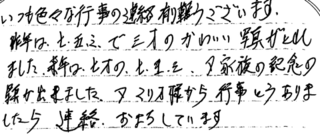 いつも色々な行事の連絡有難うございます.
昨年は、七.五.三、で三才のかわいい写真がとれ
ました. 本年は、七才の、七.五.三. 又家族の記念の
写真が出来ました. 又マリオ様から行事とうありま
したら 連絡. おまちしています